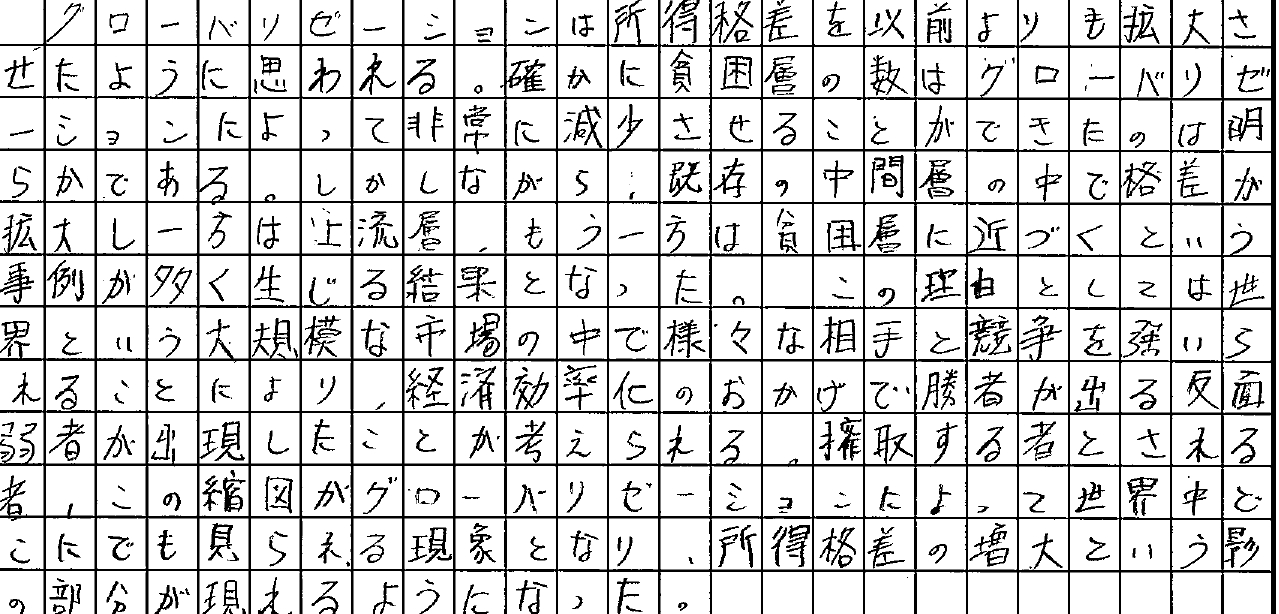 グローバリゼーションは所得格差を以前よりも拡大さ
せたように思われる。確かに貧困層の数はグローバリゼ
ーションによって非常に減少させることができたのは明
らかである。しかしながら、既存の中間層の中で格差が
拡大し一方は上流層、もう一方は貧困層に近づくという
事例が多く生じる結果となった。この理由としては世
界という大規模な市場の中で様々な相手と競争を強いら
れることにより、経済効率化のおかげで勝者が出る反面
弱者が出現したことが考えられる。搾取する者とされる
者、この縮図がグローバリゼーションによって世界中ど
こにでも見られる現象となり、所得格差の増大という影
の部分が現れるようになった。